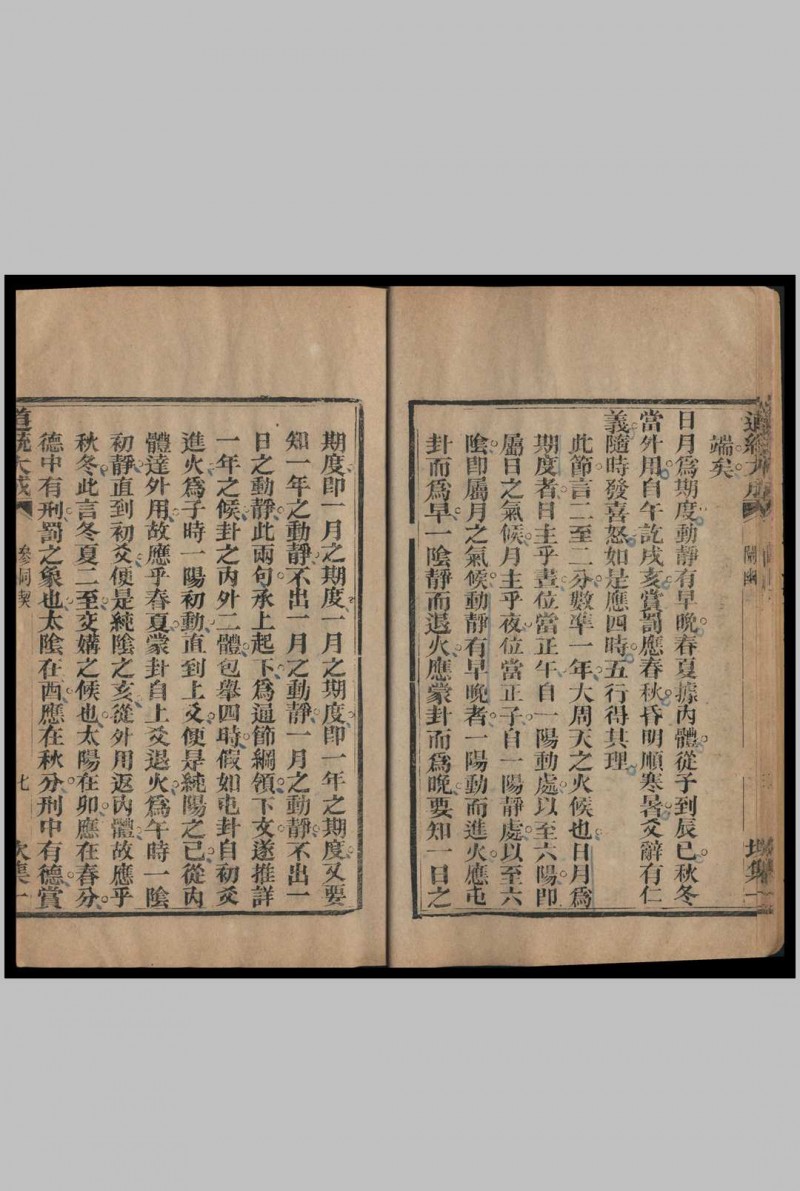 端矣
日月爲期度動靜有早晚春夏據內體從子到辰巳秋冬
當外用自午訖戌亥賞罰應春秋昏明順寒暑爻辭有仁
義隨時發喜怒如是應四時五行得其理
此節言二至二分數準一年大周天之火候也日月爲
期度者日主乎晝位當正午自一陽動處以至六陽卽
屬日之氣候月主乎夜位當正子自一陽靜處以至六
陰卽屬月之氣候動靜有早晚者一陽動而進火應屯
卦而爲早一陰靜而退火應蒙卦而爲晚要知一日之
期度卽一月之期度一月之期度卽一年之期度又要
知一年之動靜不出一月之動靜一月之動靜不出一
日之動靜此兩句承上起下爲通節綱領下文遂推詳
一年之候卦之內外二體包舉四時假如屯卦自初爻
進火爲子時一陽初動直到上爻便是純陽之巳從內
體達外用故應乎春夏蒙卦自上爻退火爲午時一陰
初靜直到初爻便是純陰之亥從外用返內體故應乎
秋冬此言冬夏二至交媾之候也太陽在卯應在春分
德中有刑罰之象也太陰在酉應在秋分刑中有德賞
道統大成 參同契 七 坎集一